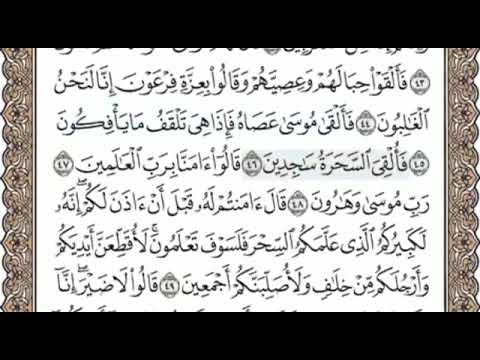 ٤٣ فَأَلْقَوْا۟ حِبَالَهُمْ وَعِصِيَّهُمْ وَقَالُوا۟ بِعِزَّةِ فِرْعَوْنَ إِنَّا لَنَحْنُ
ٱلْغَٰلِبُونَ ٤٤ فَأَلْقَىٰ مُوسَىٰ عَصَاهُ فَإِذَا هِىَ تَلْقَفُ مَا يَأْفِكُونَ
٤٥ فَأُلْقِىَ ٱلسَّحَرَةُ سَٰجِدِينَ ٤٦ قَالُوٓا۟ ءَامَنَّا بِرَبِّ ٱلْعَٰلَمِينَ ٤٧
رَبِّ مُوسَىٰ وَهَٰرُونَ ٤٨ قَالَ ءَامَنتُمْ لَهُۥ قَبْلَ أَنْ ءَاذَنَ لَكُمْ إِنَّهُۥ
لَكَبِيرُكُمُ ٱلَّذِى عَلَّمَكُمُ ٱلسِّحْرَ فَلَسَوْفَ تَعْلَمُونَ لَأُقَطِّعَنَّ أَيْدِيَكُمْ
وَأَرْجُلَكُم مِّنْ خِلَٰفٍ وَلَأُصَلِّبَنَّكُمْ أَجْمَعِينَ ٤٩ قَالُوا۟ لَا ضَيْرَ إِنَّآ